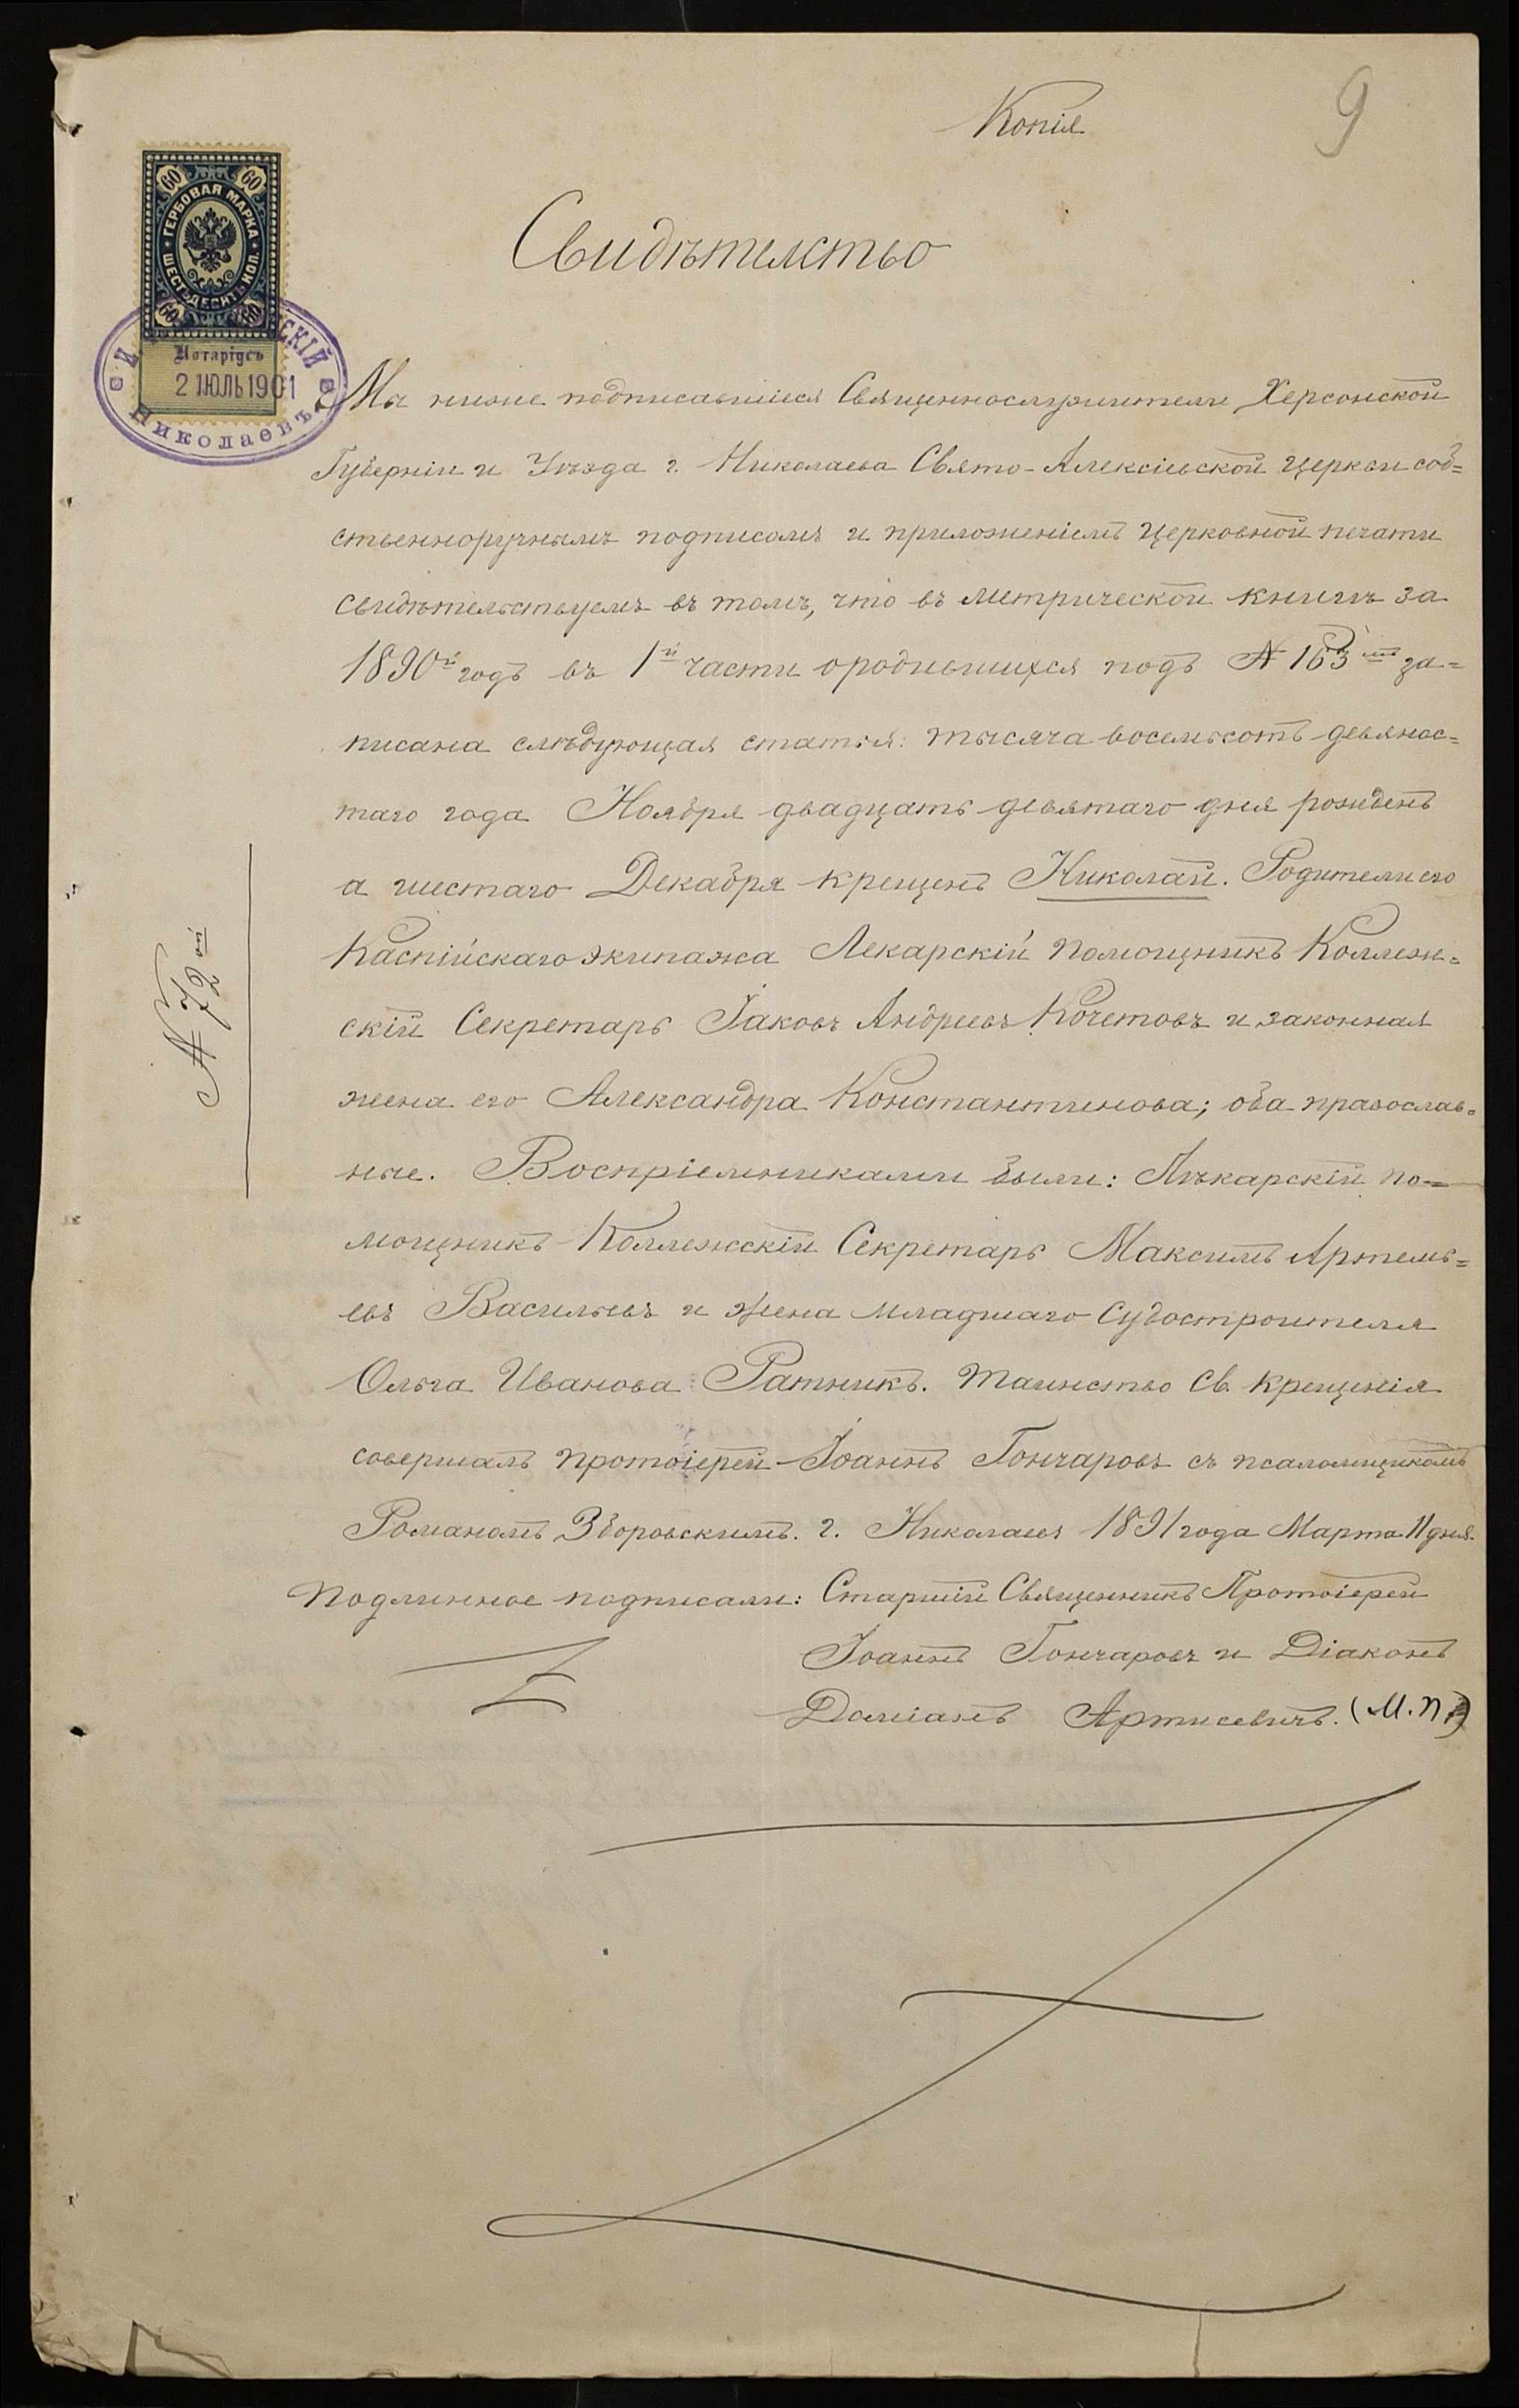 Копія
9
Свидѣтелство
60 60
ГЕРБОВАЯ МАРКА
ШЕСТЬДЕСЯТЪ КОП.
60 60
Нотаріусъ
2 ІЮЛЬ 1901
Николаевъ
Мы ниже подписавшіеся Священнослужители Херсонской
Губерніи и Уѣзда г. Николаева Свято-Алексіевской церкви соб=
ственноручнымъ подписомъ и приложеніемъ церковной печати
свидѣтельствуемъ въ томъ, что въ метрической книгѣ за
1890й годъ въ 1й части ородившихся подъ № 163мъ за=
писана слѣдующая статья: тысяча восемьсотъ девянос=
таго года Ноября двадцать девятаго дня рожденъ
а шестаго Декабря крещенъ Николай. Родители его
Каспійскаго экипажа Лекарскій помощникъ Коллеж=
скій Секретарь Іаковъ Андреевъ Кочетовъ и законная
жена его Александра Константинова; оба православ=
ные. Воспріемниками были: Лѣкарскій по=
мощникъ Коллежскій Секретарь Максимъ Артемь=
евъ Васильевъ и жена младшаго Судостроителя
Ольга Иванова Ратникъ. Таинство Св. крещенія
совершалъ протоіерей Іоаннъ Гончаровъ съ псаломщикомъ
Романомъ Зборовскимъ. г. Николаевъ 1891 года Марта 11 дня.
Подлинное подписали: Старшій Священникъ Протоіерей
Іоаннъ Гончаровъ и Діаконъ
Даміанъ Артисевичъ. (М.П.)
№ 72й